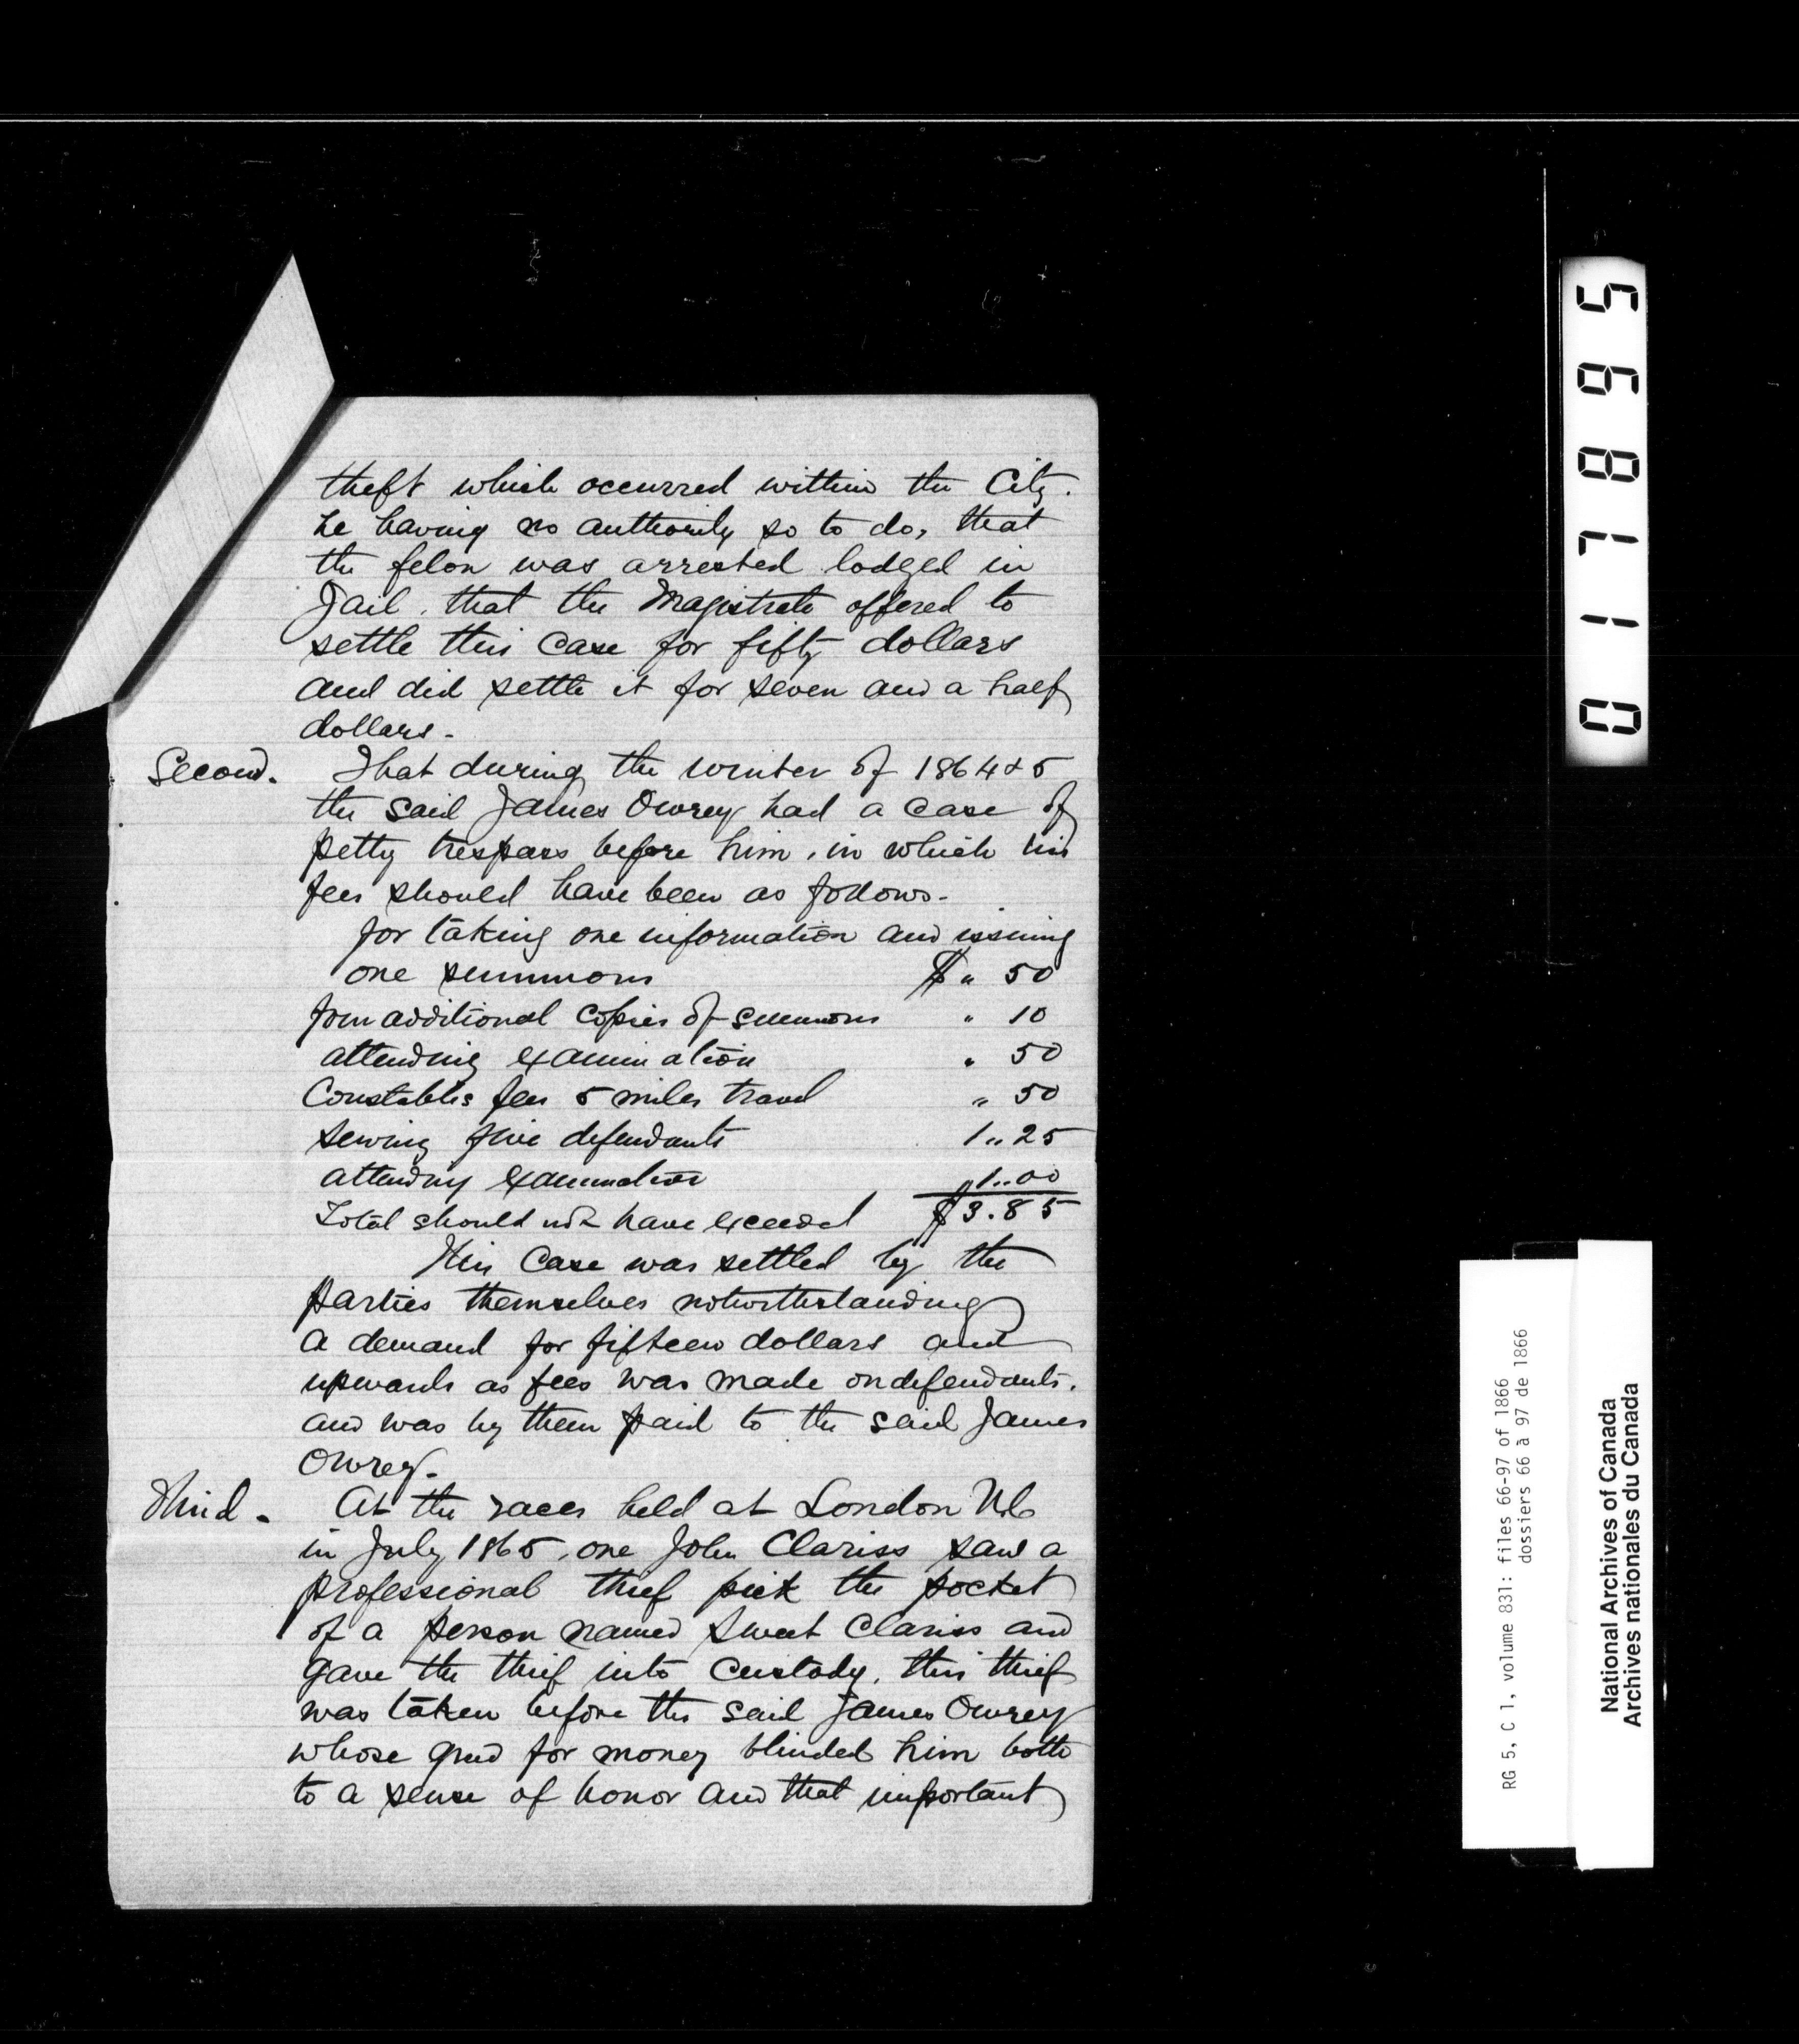 theft which occurred within the City.
he having no authority so to do, that
the felon was arrested lodged in
Jail, that the Magistrate offered to
settle this case for fifty dollars
and did settle it for seven and a half
dollars.
Second. That during the winter of 1864 & 5
the said James Owrey had a case of
petty trespass before him, in which his
fees should have been as follows.
for taking one information and issuing
one summons $ " 50
four additional copies of summons " 10
attending examination " 50
Constables fees 5 miles travel " 50
serving five defendants 1 " 25
attending examination 1 " 00
Total should not have exceeded $3.85
This case was settled by the
parties themselves notwithstanding
a demand for fifteen dollars and
upwards as fees was made on defendants.
and was by them paid to the said James
Owrey.
Third. At the races held at London
in July 1865, one John Clariss saw a
professional thief pick the pocket
of a person named Sweet Clariss and
gave the thief into custody, this thief
was taken before the said James Owrey
whose greed for money blinded him both
to a sense of honor and that important
017895
RG 5, C 1, volume 831: files 66-97 of 1866
dossiers 66 à 97 de 1866
National Archives of Canada
Archives nationales du Canada